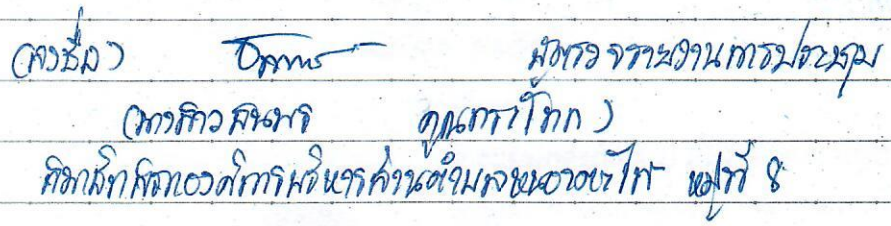 (ลงชื่อ) ผู้ตรวจรายงานการประชุม
(นางสาวธนพร คูณกระโทก)
สมาชิกสภาองค์การบริหารส่วนตำบล หมู่ที่ 8